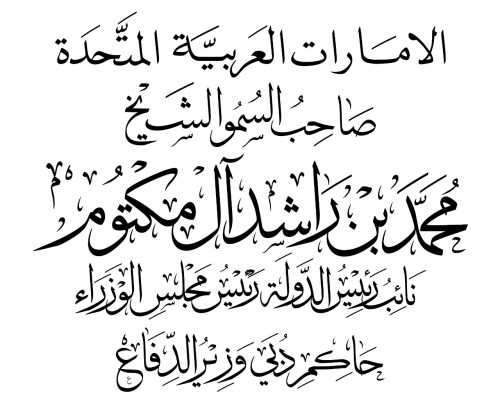 الامارات العربيّة المتّحدة
صَاحِبُ السُموالشَيخ
مُحَمَّد بن رَاشد آل مكتُوم
نائبُ رَئيسُ الدَّولَة رَئيسُ مجْلسِ الوُزرَاء
حَاكم دُبيَ وَزيرُ الدِّفَاع